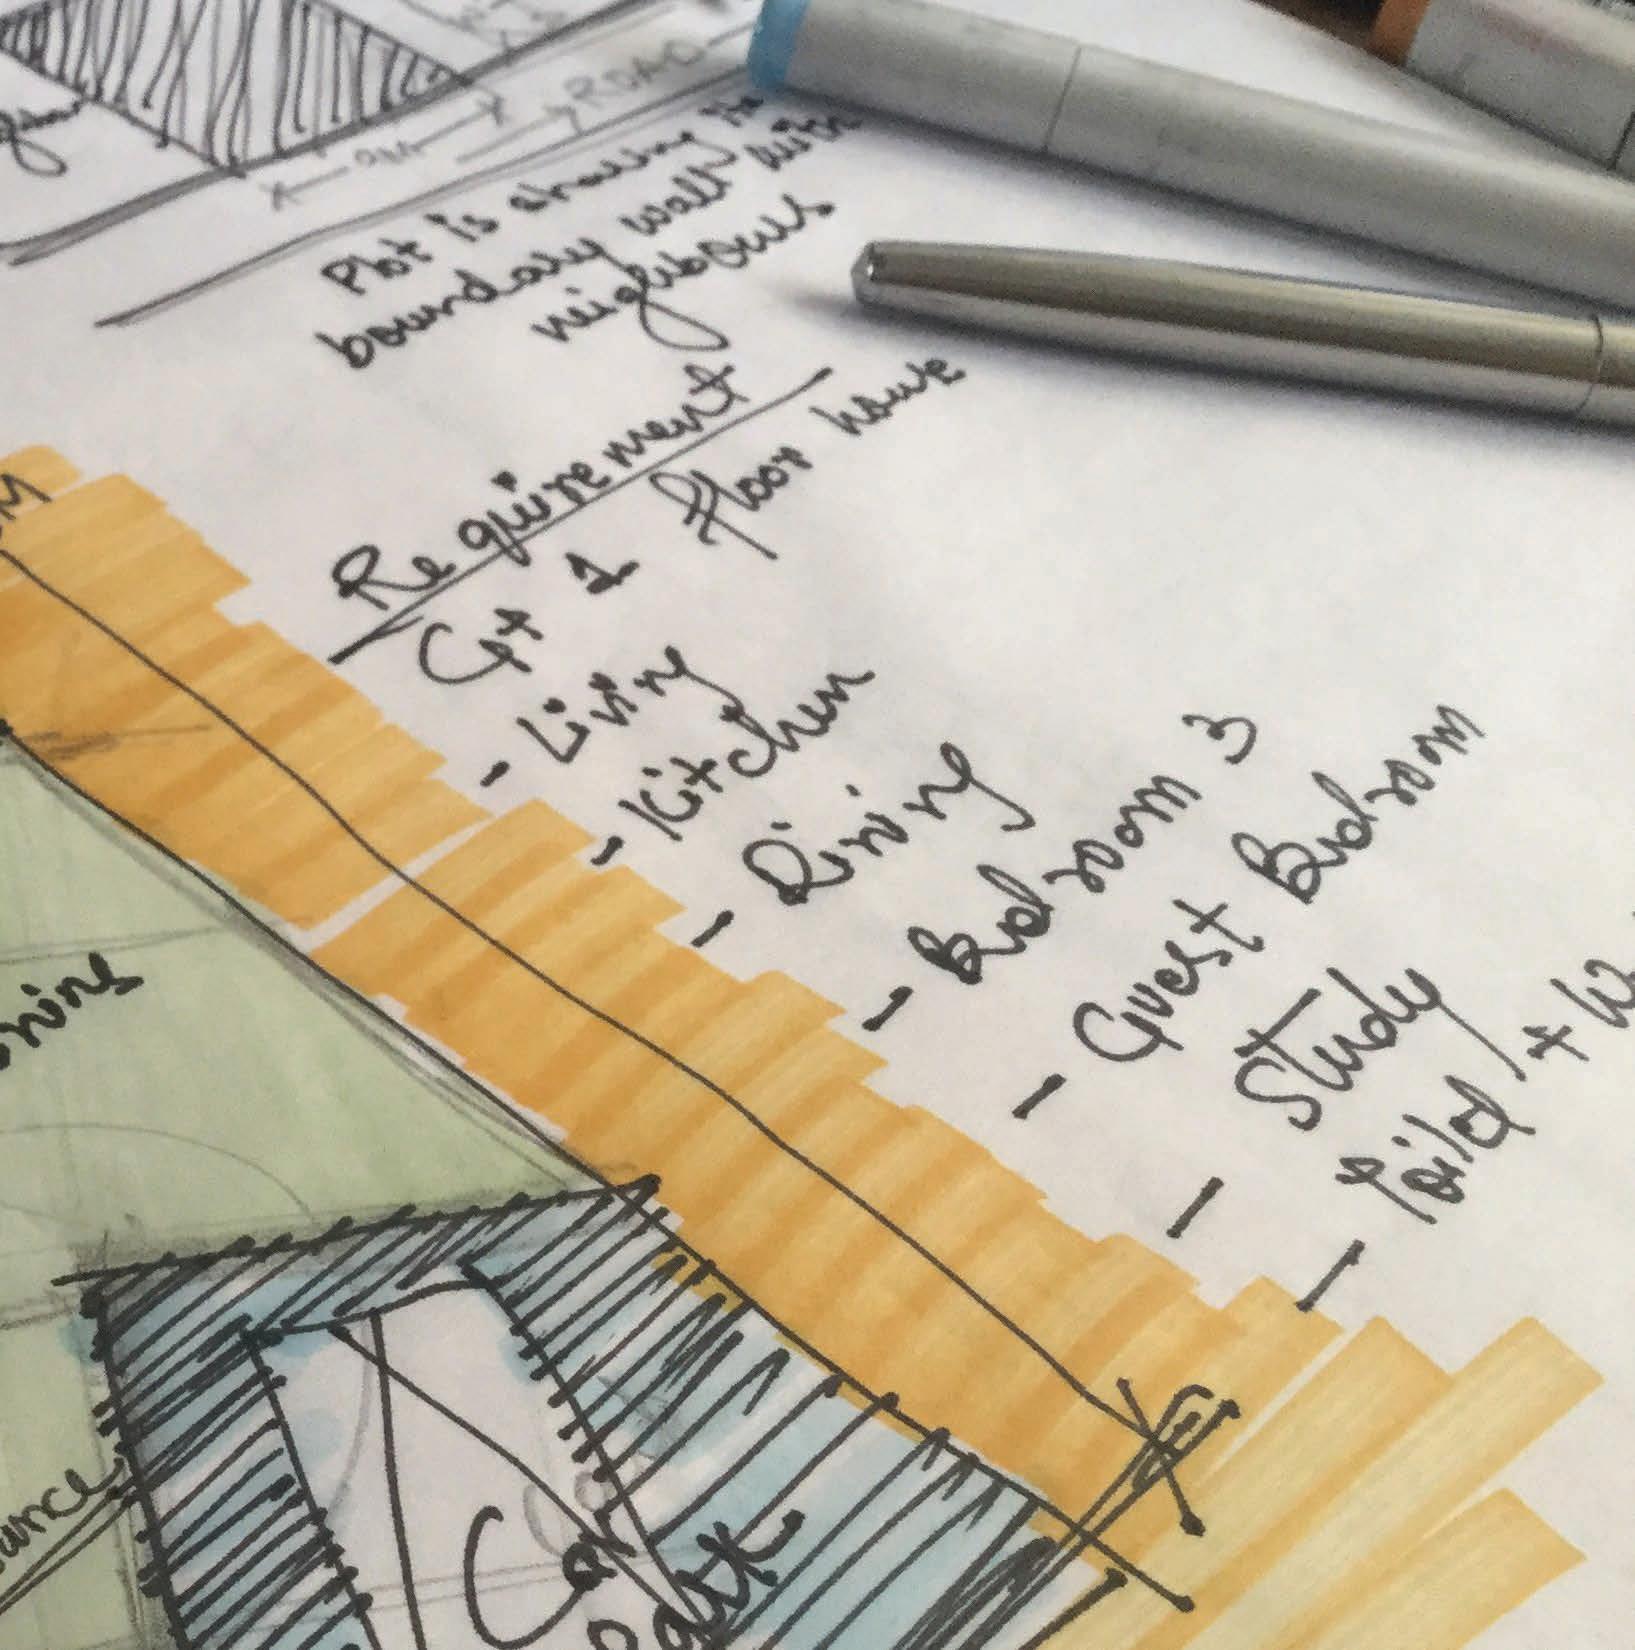 ROAD
9M
Plot is sharing the
boundary wall with
neighbours
Requirement
G+ 1 floor house
- Living
- Kitchen
- Dining
- Bedroom 3
- Guest Bedroom
- Study
- Toilet + W
M
Car